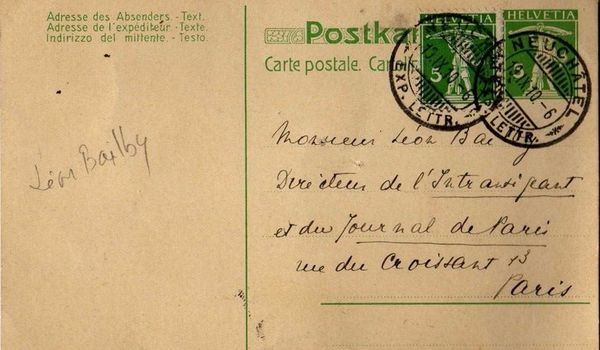 Adresse des Absenders. - Text.
Adresse de l'expéditeur. - Texte.
Indirizzo del mittente. - Testo.
Postka
Carte postale. Car
HELVETIA
5
HELVETIA
5
EXP. LETTR.
NEUCHÂTEL
IX.10.-6
LETTR.
Léon Bailby
Monsieur Léon
Directeur de l'Intransigeant
et du Journal de Paris
rue du Croissant 13
Paris